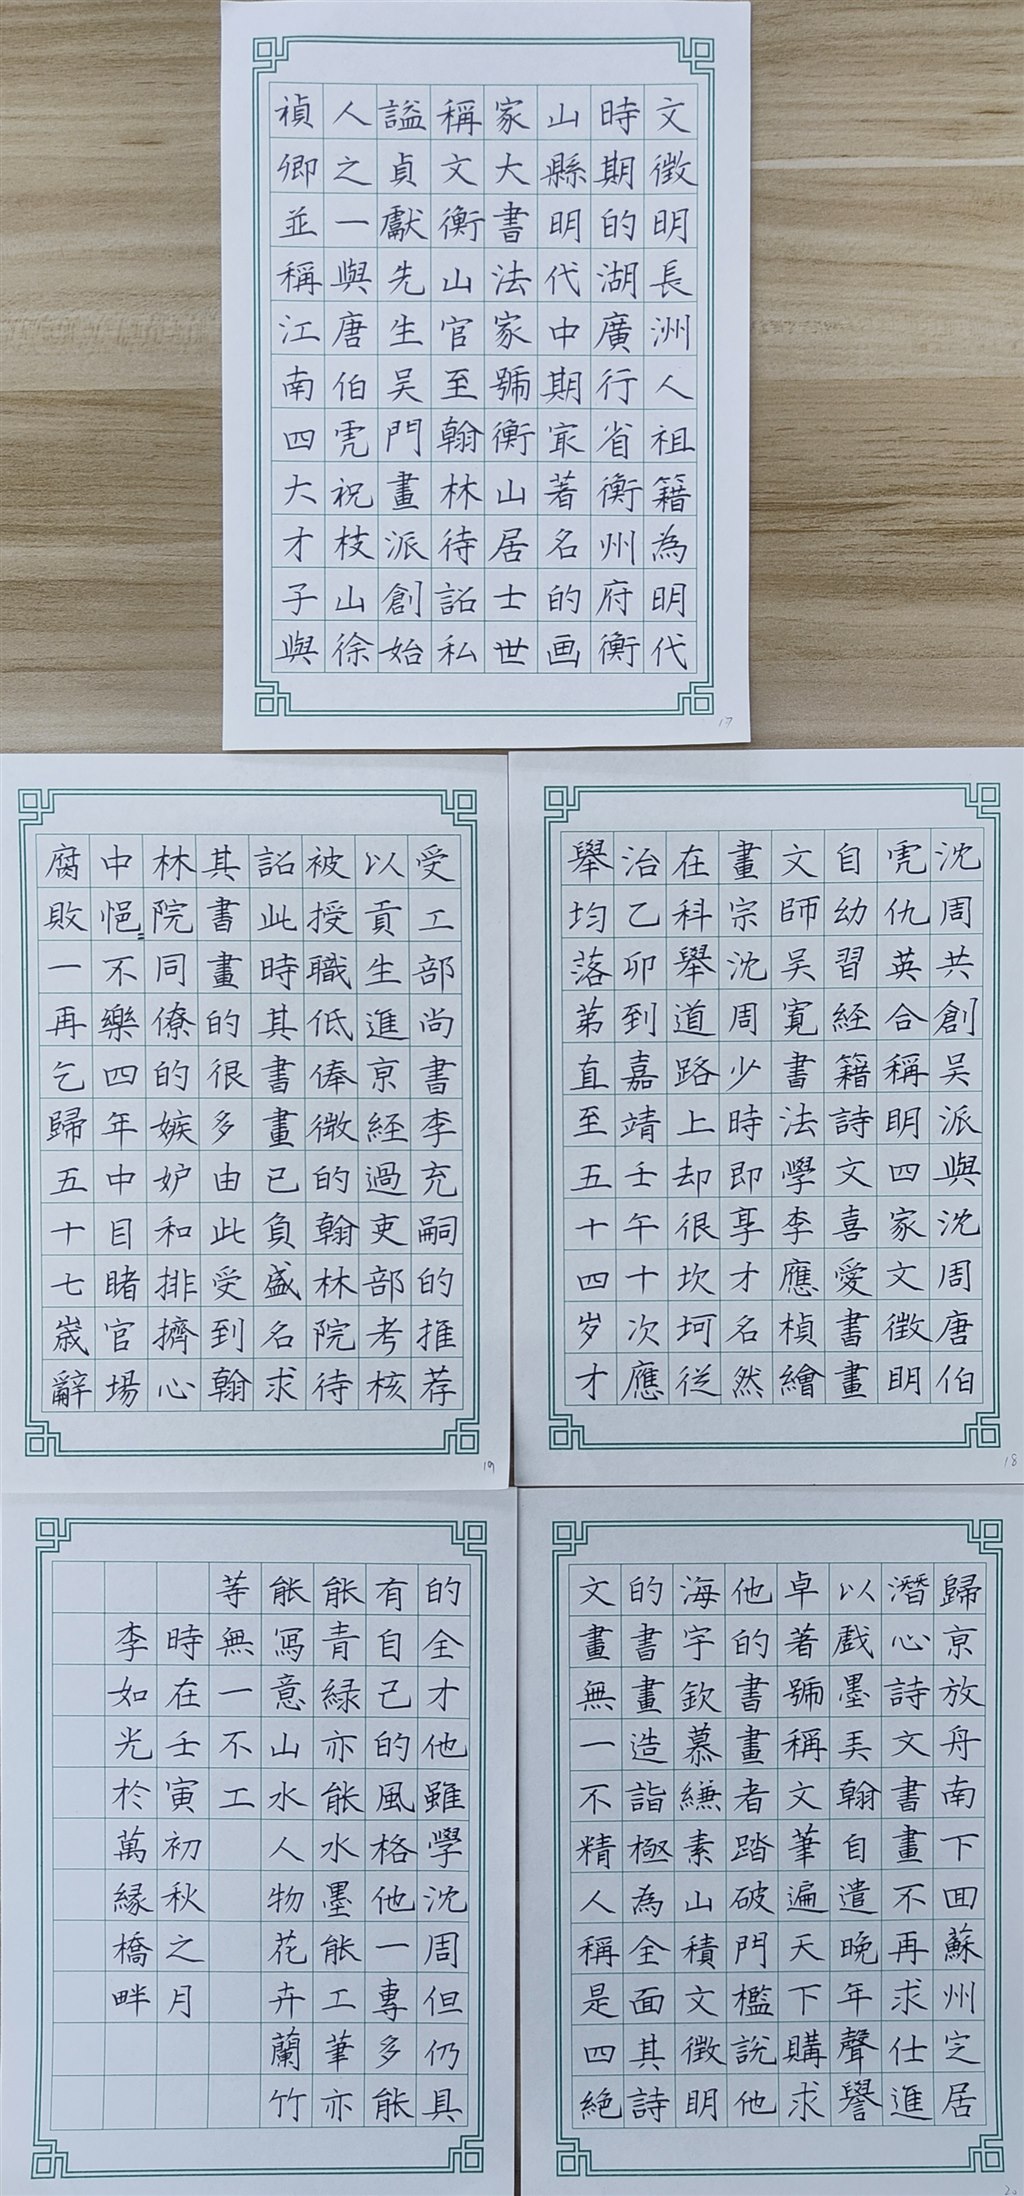 文徵明長洲人祖籍為明代
時期的湖廣行省衡州府衡
山縣明代中期冣著名的画
家大書法家號衡山居士世
稱文衡山官至翰林待詔私
謚貞獻先生吴門畫派創始
人之一與唐伯虎祝枝山徐
禎卿並稱江南四大才子與
17
沈周共創吴派與沈周唐伯
虎仇英合稱明四家文徵明
自幼習經籍詩文喜愛書畫
文師吴寬書法學李應楨繪
畫宗沈周少時即享才名然
在科舉道路上却很坎坷從
治乙卯到嘉靖壬午十次應
舉均落第直至五十四岁才
18
受工部尚書李充嗣的推荐
以貢生進京經過吏部考核
被授職低俸微的翰林院待
詔此時其書畫已負盛名求
其書畫的很多由此受到翰
林院同僚的嫉妒和排擠心
中悒不樂四年中目睹官場
腐敗一再乞歸五十七歲辭
19
歸京放舟南下囬蘇州定居
潛心詩文書畫不再求仕進
以戲墨弄翰自遣晚年聲譽
卓著號稱文筆遍天下購求
他的書畫者踏破門檻說他
海宇欽慕縑素山積文徵明
的書畫造詣極為全面其詩
文畫無一不精人稱是四絕
20
的全才他雖學沈周但仍具
有自己的風格他一專多能
能青緑亦能水墨能工筆亦
能寫意山水人物花卉蘭竹
等無一不工
時在壬寅初秋之月
李如光於萬緣橋畔